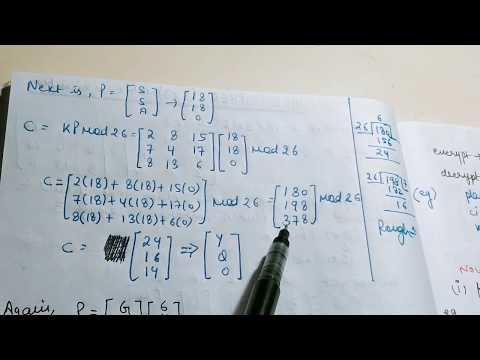 Next is, P = [S S A] → [18 18 0]
C = KP mod 26 = [2 8 15 7 4 17 8 13 6] [18 18 0] mod 26
C = [2(18) + 8(18) + 15(0) 7(18) + 4(18) + 17(0) 8(18) + 13(18) + 6(0)] mod 26 = [180 198 378] mod 26
C = [24 16 14] ⇒ [Y Q O]
Again, P = [G
6
26 180
156
24
26 198 7
182
16
Rough
encrypt →
decrypt
(eg)
(i)
eg